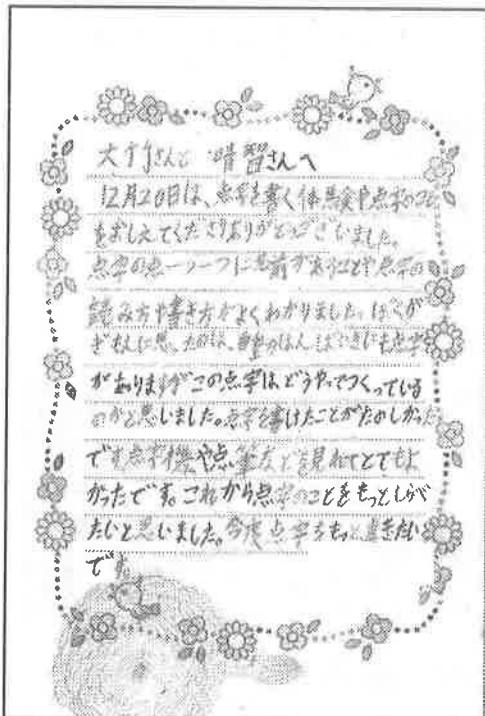 さんと 晴習さんへ
12月20日は、点字を書く体験や点字のこと
をおしえてくださりありがとうございました。
点字の点一つ一つに名前があることや点字の
読み方や書き方がよくわかりました。ぼくが
ぎもんに思ったのは、にも点字
がありますがこの点字はどうやってつくっている
のかと思いました。点字を書けたことがたのしかった
です。点字機や点筆などを見れてとてもよ
かったです。これから点字のことをもっとしらべ
たいと思いました。今度点字をもっと書きたい
です。